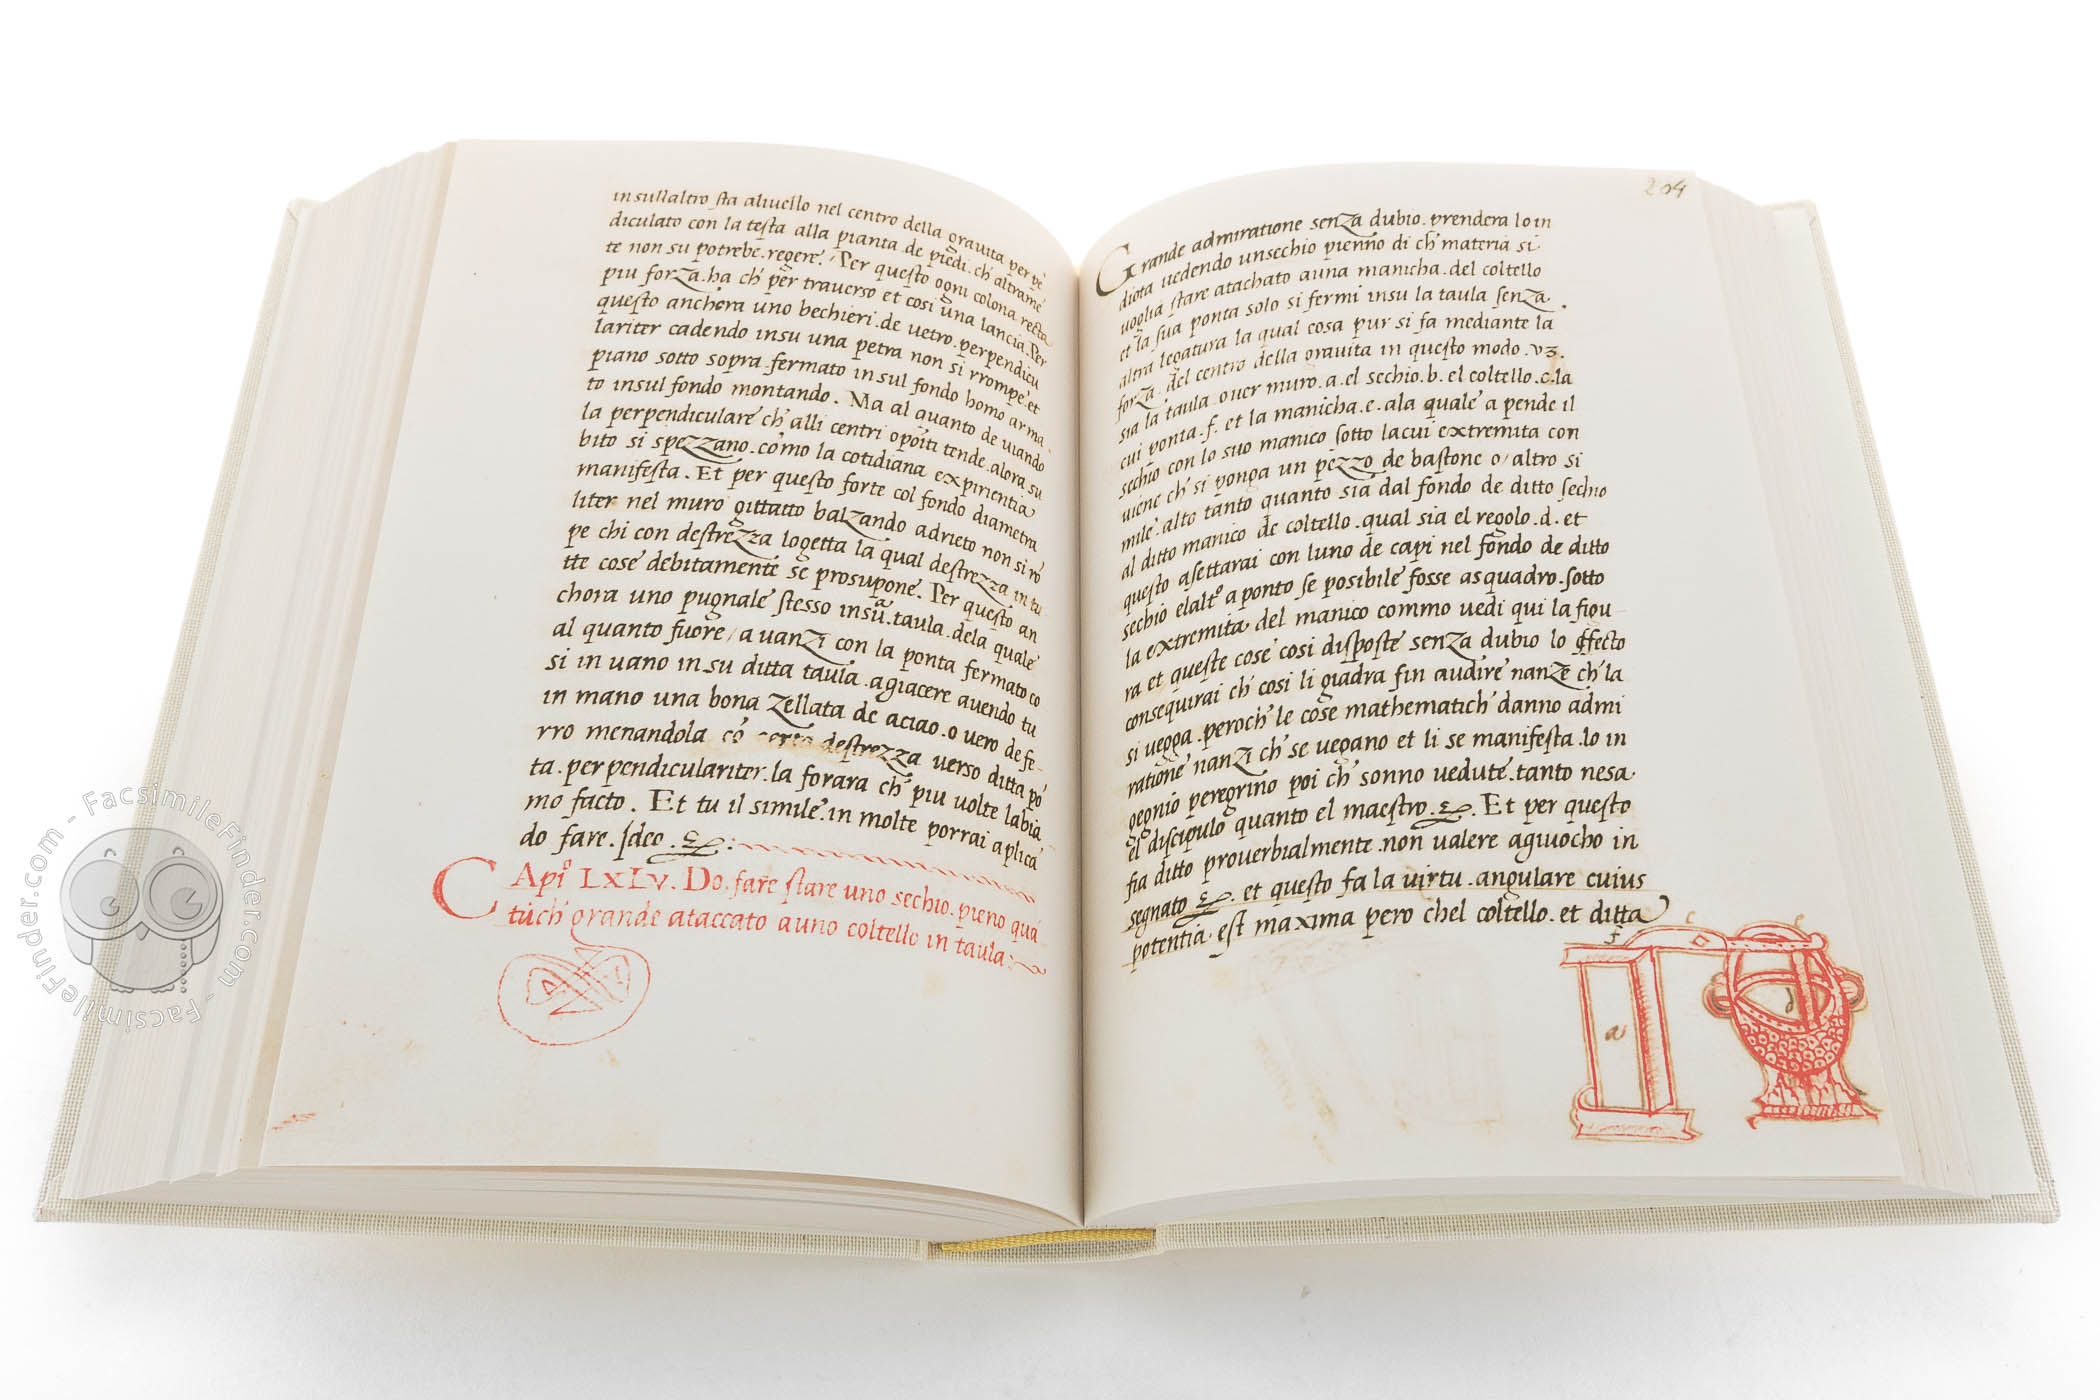 in sullaltro sta aliuello nel centro della grauita per pē
diculato con la testa alla pianta de piedi. ch' altrame
te non su potrebe. regere. / Per questo ogni colona recta
piu forza. ha ch' per trauerso et cosi una lancia. Per
questo anchora uno bechieri. de uetro. perpendicu
lariter cadendo insu una petra non si rrompe. et
piano sotto sopra. fermato insul fondo homo arma
to insul fondo montando. Ma al quanto de uiando
la perpendiculare ch' alli centri opoiti tende. alora su
bito si spezzano. como la cotidiana expirientia
manifesta. Et per questo forte col fondo diametra
liter nel muro gittatto balzando adrieto non si rō
pe chi con destrezza logetta la qual destrezza in tu
tte cose debitamente se prosupone. Per questo an
chora uno pugnale stesso insū. taula. dela quale
al quanto fuore / a uanzi con la ponta fermato co
si in uano in su ditta taula. agiacere auendo tu
in mano una bona zellata de aciao. o uero de fe-
rro menandola cō certa destrezza uerso ditta pō
ta. perpendiculariter. la forara ch' piu uolte labia
mo facto. Et tu il simile. in molte porrai aplica
do fare. Ideo. &c. :
CApiº LXLV. Do. fare stare uno sechio. pieno quā
tūch' grande ataccato auno coltello in taula :~
204
Grande admiratione senza dubio. prendera lo in
diota uedendo unsechio pienno di ch' materia si
uoglia stare atachato auna manicha. del coltello
et la sua ponta solo si fermi insu la taula senza.
altra legatura la qual cosa pur si fa mediante la
forza. del centro della grauita in questo modo. vz.
sia la taula ouer muro. a. el sechio. b. el coltello. c. la
cui ponta. f. et la manicha. e. ala quale a pende il
sechio con lo suo manico sotto lacui extremita con
uiene ch' si ponga un pezzo de bastone o / altro si
mile. alto tanto quanto sia dal fondo de ditto sechio
al ditto manico de coltello. qual sia el regolo. d. et
questo asettarai con luno de capi nel fondo de ditto
sechio elaltº aponto se posibile fosse asquadro. sotto
la extremita del manico commo uedi qui la figu-
ra et queste cose cosi disposte senza dubio lo effecto
consequirai ch' cosi li giadra fin audire nanze ch' la
si uegga. peroch' le cose mathematich' danno admi
ratione nanzi ch' se uegano et li se manifesta. lo in
gegnio peregrino poi ch' sonno uedute. tanto nesa
elº discipulo quanto el maestro. &c. Et per questo
fia ditto prouerbialmente. non ualere agiuocho in
segnato &c. et questo fa la uirtu. angulare cuius
potentia. est maxima pero chel coltello. et ditta
c
e
f
a
d
FacsimileFinder.com - FacsimileFinder.com -